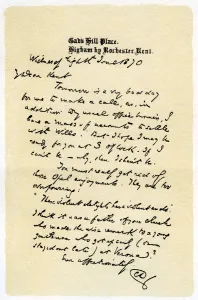 Gad's Hill Place,
Higham by Rochester, Kent.
Wednesday eighth June 1870
My Dear Kent
Tomorrow is a very bad day
for me to make a call, as, in
addition to my usual office business, I
have a mass of accounts to settle
with Wills. But I hope I may be
ready for you at 3 o'clock. If I
can't be — why, then I shan't be.
You must really get rid of
those Opal enjoyments. They are too
overpowering.
"These violent delights have violent ends."
I think it was a father of your church
who made the wise remark to a young
gentleman who got up early (or
stayed out late) at Verona?
Ever affectionately